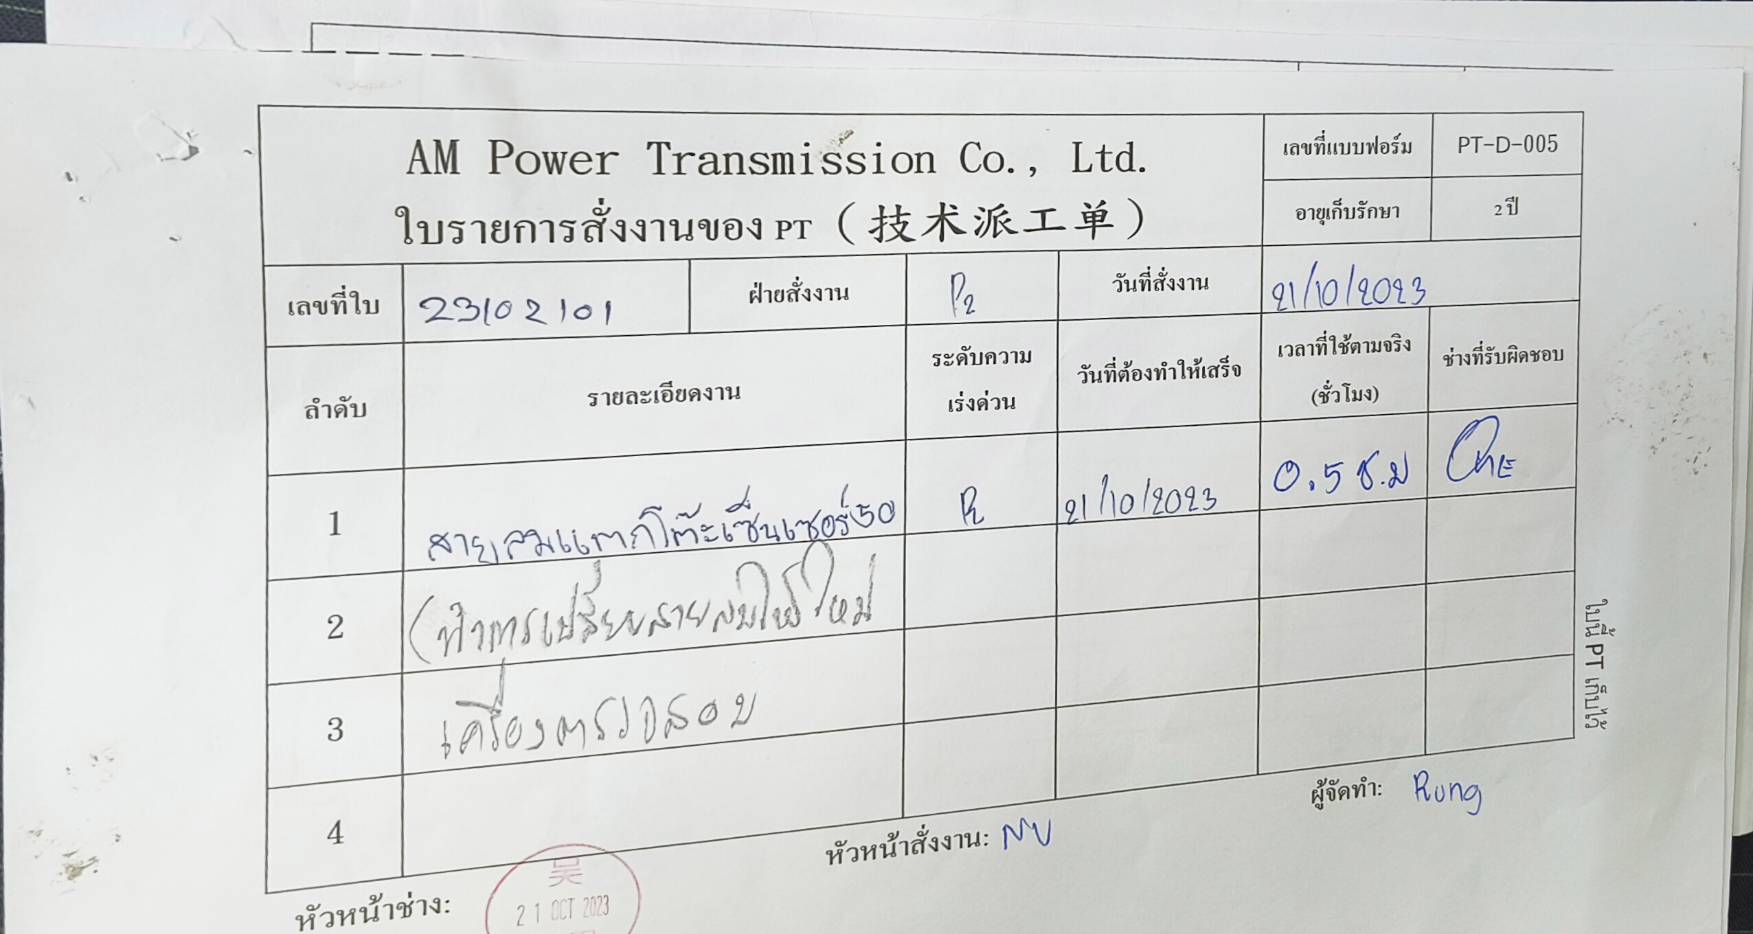 AM Power Transmission Co., Ltd.
ใบรายการสั่งงานของ PT (技术派工单)
เลขที่แบบฟอร์ม PT-D-005
อายุเก็บรักษา 2 ปี
เลขที่ใบ 23102101 ฝ่ายสั่งงาน P2 วันที่สั่งงาน 21/10/2023
ลำดับ รายละเอียดงาน ระดับความเร่งด่วน วันที่ต้องทำให้เสร็จ เวลาที่ใช้ตามจริง (ชั่วโมง) ช่างที่รับผิดชอบ
1 สายลมแตกโต๊ะเซ็นเซอร์50 21/10/2023 0.5 ช.ม
2 (ทำการเปลี่ยนสายลมให้ใหม่
3 เครื่องตรวจสอบ
4
ผู้จัดทำ: Rung
หัวหน้าสั่งงาน: NU
หัวหน้าช่าง:
吴
21 OCT 2023
ใบนี้ PT เก็บไว้